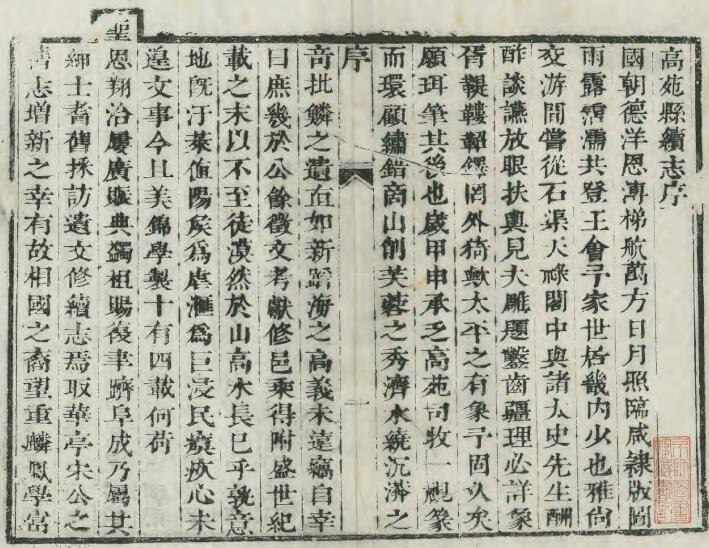 高苑縣續志序
國朝德洋恩溥梯航萬方日月照臨咸隸版圖
雨露霑濡共登王會予家世居畿內少也雅尚
交游間嘗從石渠天祿閣中與諸太史先生酬
酢談讌放眼扶輿見夫雕題鑿齒疆理必詳象
胥鞮鞻軺鐸罔外猗歟太平之有象予固久矣
願珥筆其後也歲甲申承乏高苑司牧一視篆
而環顧繡錯商山削芙蓉之秀濟水繞沉漭之
序
一
奇批鱗之遺直如新蹈海之高義未遠竊自幸
曰庶幾於公餘徵文考獻修邑乘得附盛世紀
載之末以不至徒漠然於山高水長已乎孰意
地既汙萊値陽侯爲虐滙爲巨浸民瘼疚心未
遑文事今且美錦學製十有四載何荷
聖
恩翔洽屢廣賑典蠲租賜復聿躋阜成乃屬其
紳士耆舊採訪遺文修續志焉取華亭宋公之
舊志增新之幸有故相國之裔望重麟鳳學富